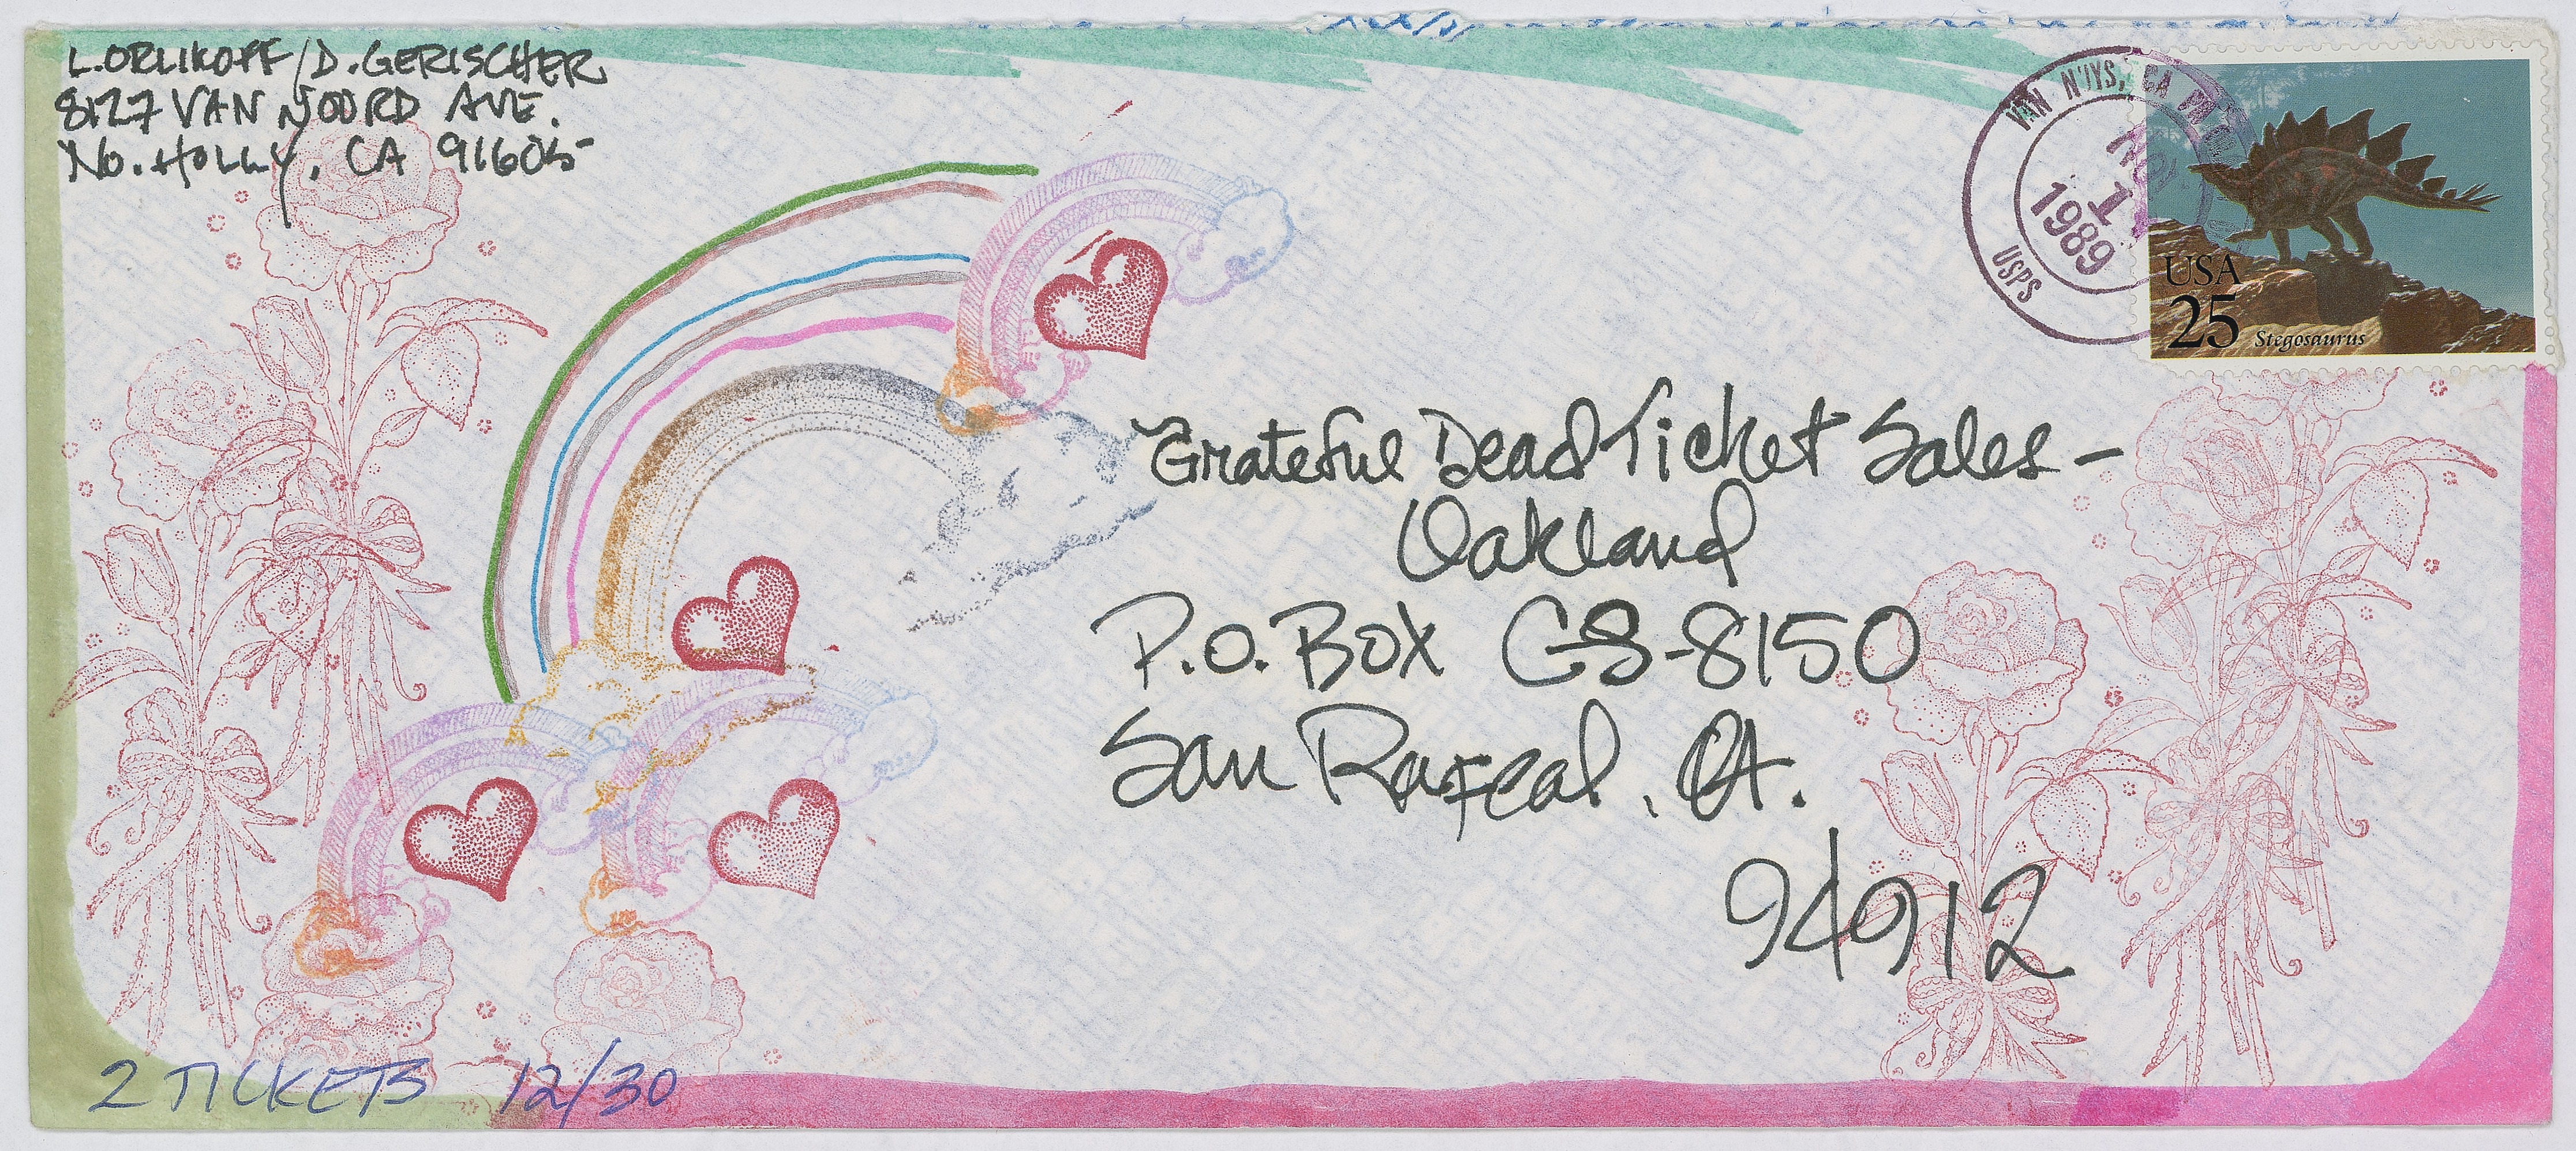 L. ORLIKOFF/D. GERISCHER
8127 VAN NOORD AVE.
No. HOLLY, CA 91605
VAN NUYS, CA
1
1989
USPS
USA
25
Stegosaurus
Grateful Dead Ticket Sales -
Oakland
P.O. Box CS-8150
San Rafeal, CA.
94912
2 TICKETS 12/30